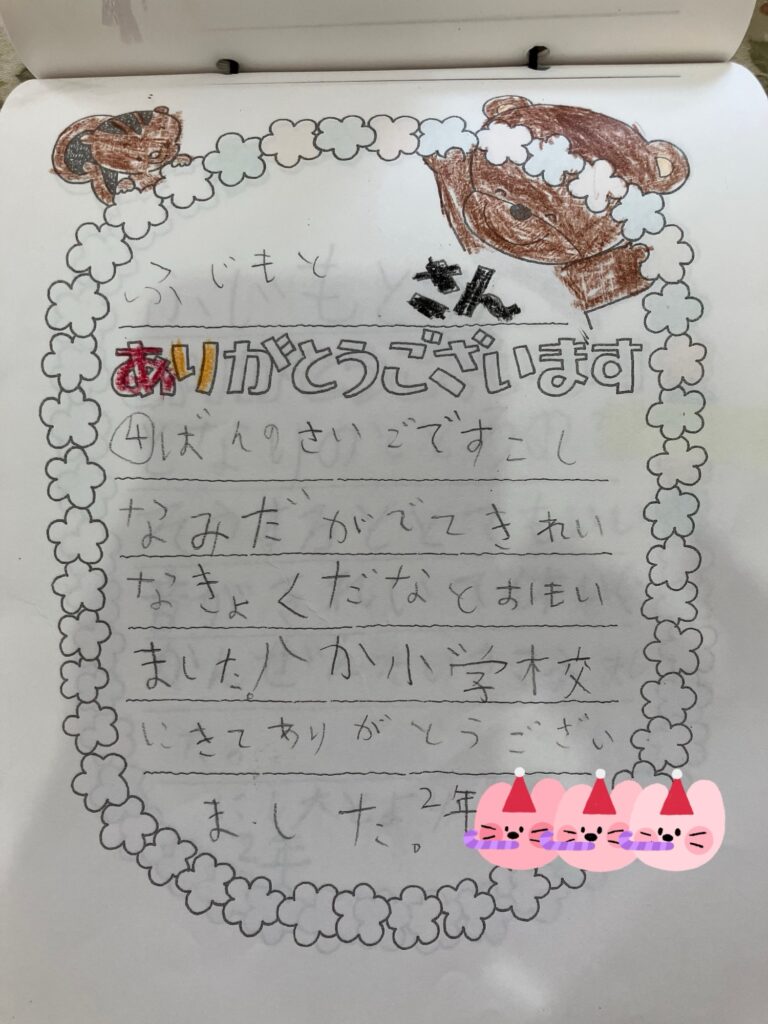 ふじもと さん
ありがとうございます
④ばんのさいごですこし
なみだがでてきれい
なきょくだなとおもい
ました。八か小学校
にきてありがとうござい
ました。2年